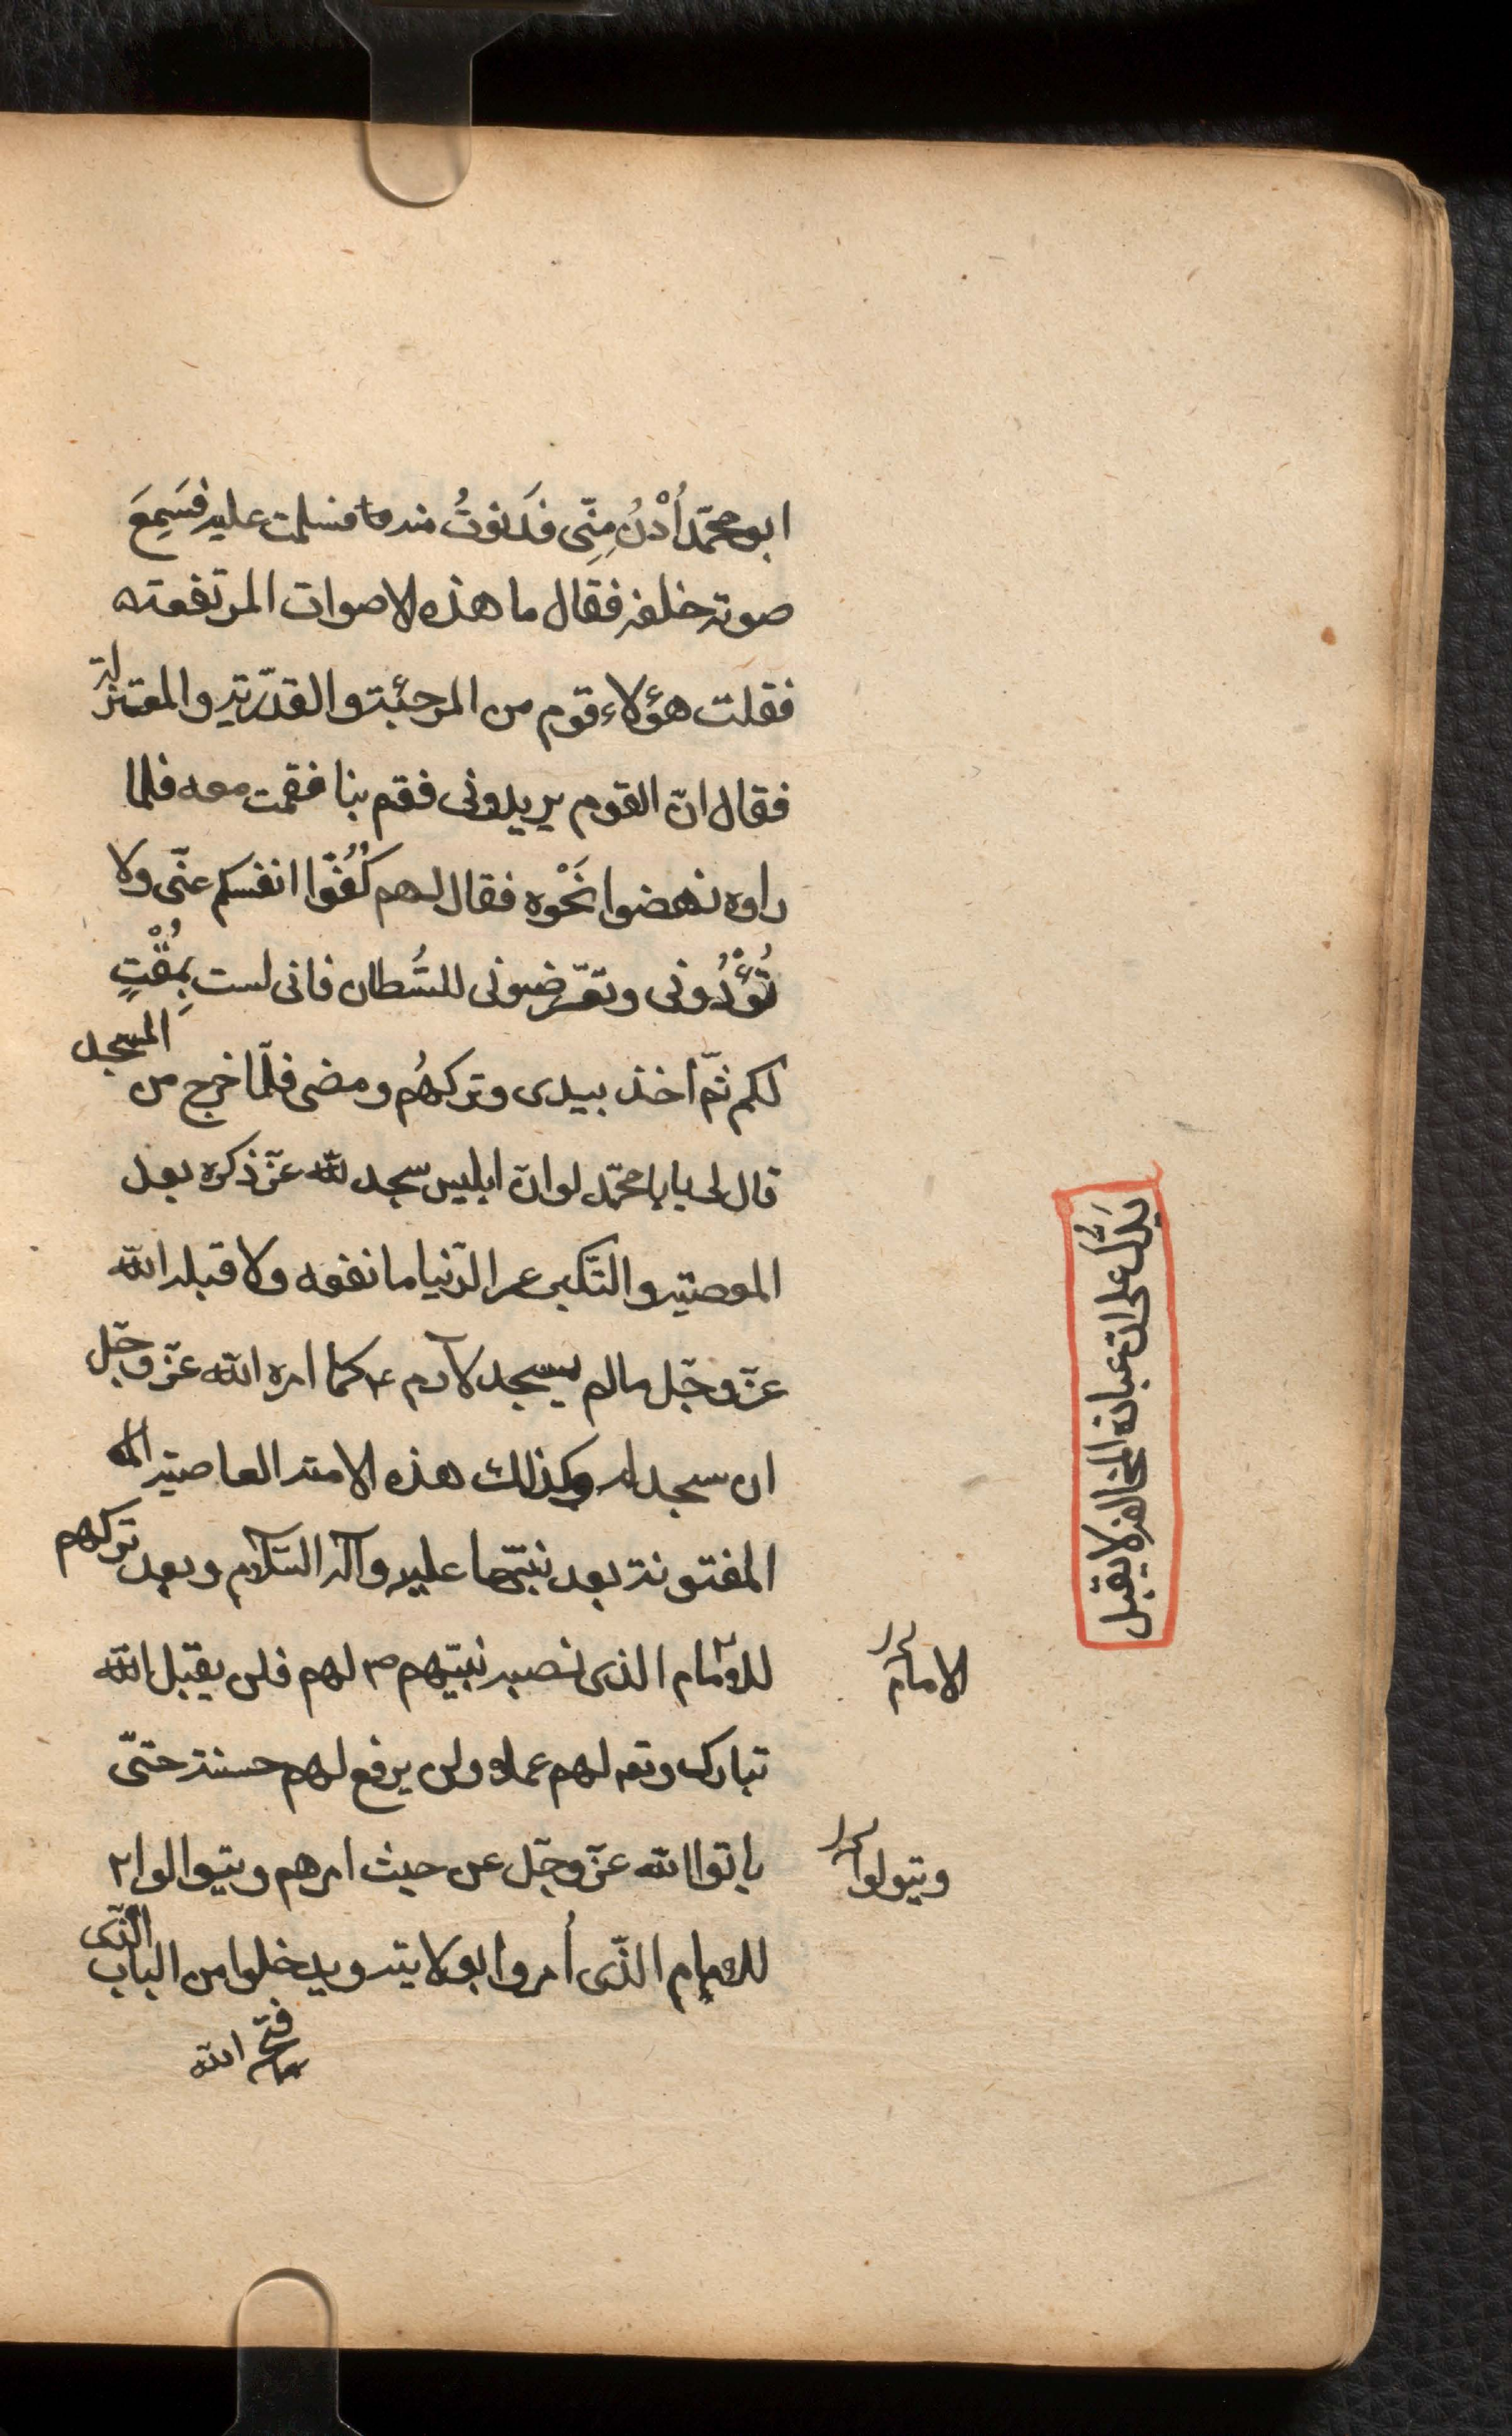 ابو محمّد أُدْنُ مِنِّى فَدَنوتُ منه فسلمت عليه فَسَمِعَ
صوته خلفه فقال ما هذه الاصوات المرتفعته
فقلت هؤلاء قوم من المرجئة والقدّريّه والمعتزلة
فقال انّ القوم يريدونى فقم بنا فقمت معه فلما
راوه نهضوا نَحْوه فقال لهم كُفُّوا انفسكم عنّى ولا
تُؤْذُونى وتعرّضونى للسُّطان فانى لست بِمُفْتٍ
لكم ثمّ اخذ بيدى وتركهُم ومضى فلّما خرج من المسجد
قال لى يابا محمّد لو انّ ابليس سجد لله عزّ ذكره بعد
المعصيّه والتّكبى عمر الدّنيا ما نفعه ولا قبله الله
عزّ وجّل ما لم يسجد لآدم ع كما امره الله عزّ وجّل
ان سجد له وكذلك هذه الامته العاصيّه
المفتونة بعد نبيّها عليه وآله السّلام وبعد تركهم
للامام الذى نصبه نبيّهم ص لهم فلن يقبل الله
تبارك وتع لهم عملا ولن يرفع لهم حسنة حتّى
ياتوا الله عزّ وجّل عن حيث امرهم ويتوالوا
للامام الذّى أُمروا بولايته ويدخلوا من الباب الذّى
فتح الله
الامام
ويتولوا
يَدلُّ على ان عبادة المخالفه لا يقبل